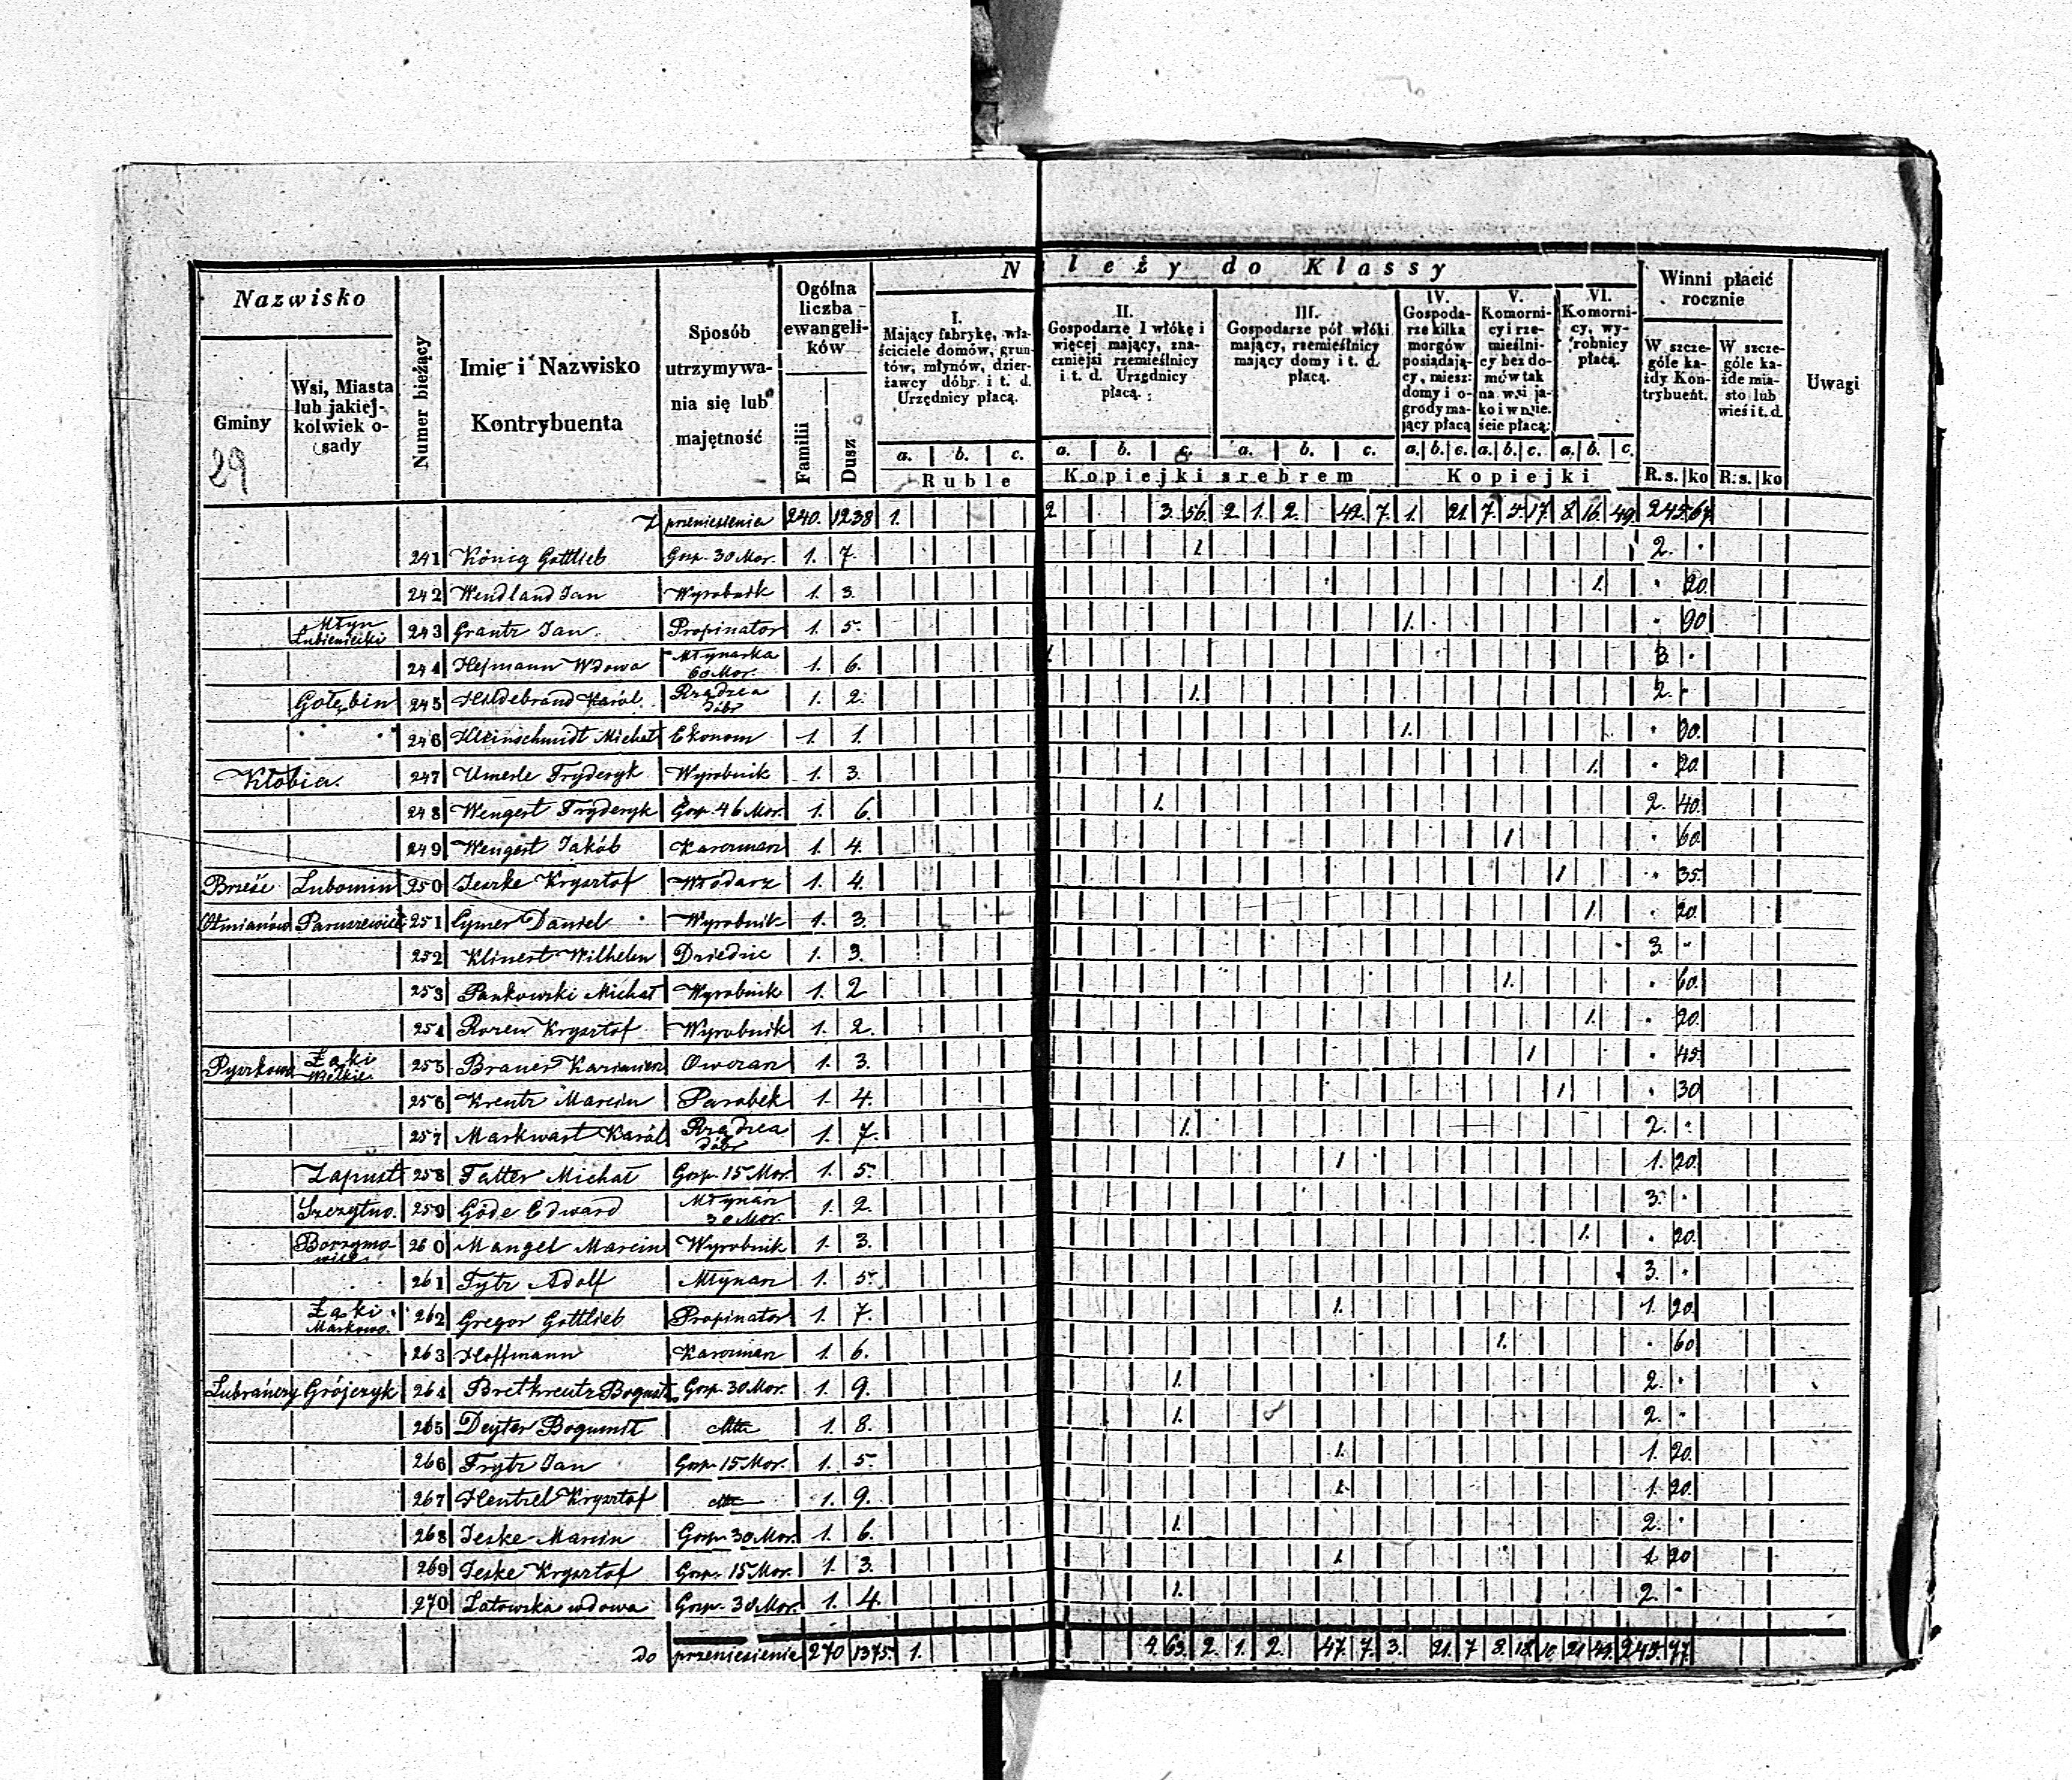 Nazwisko
Gminy
Wsi, Miasta lub jakiejkolwiek osady
Numer bieżący
Imię i Nazwisko Kontrybuenta
Sposób utrzymywania się lub majętność
Ogólna liczba ewangelików
Familii
Dusz
N leży do Klassy
I. Mający fabrykę, właściciele domów, gruntów, młynów, dzierżawcy dóbr i t. d. Urzędnicy płacą.
II. Gospodarze 1 włókę i więcej mający, znaczniejsi rzemieślnicy i t. d. Urzędnicy płacą.
III. Gospodarze pół włóki mający, rzemieślnicy mający domy i t. d. płacą.
IV. Gospodarze kilka morgów posiadający, miesz: domy i ogrody mający płacą
V. Komornicy i rzemieślnicy bez domów tak na wsi jako i w mieście płacą:
VI. Komornicy, wyrobnicy płacą.
Winni płacić rocznie
W szczególe każdy Kontrybuent.
W szczególe każde miasto lub wieś i t. d.
Uwagi
29
a. b. c. a. b. c. a. b. c. a. b. c. a. b. c. a. b. c.
Ruble Kopiejki srebrem Kopiejki R. s. ko R. s. ko
Z przeniesienia 240. 1238 1. 2. 3. 56. 2 1. 2. 42. 7. 1. 21. 7. 5 17 8 16. 49.
241 König Gottlieb Gosp. 30 Mor. 1. 7. 1 2. "
242 Wendland Jan Wyrobnik 1. 3. 1. " 20.
Młyn Lubieniecki 243 Grantz Jan Propinator 1. 5. 1. " 90
244 Hejmann Wdowa Młynarka 60 Mor. 1. 6. 1. 3. "
Gołębin 245 Hildebrand Karól Rządzca dóbr 1. 2. 1. 2. "
" " 246 Kleinschmidt Michał Ekonom 1. 1. 1. " 90.
Kłobia. 247 Umerle Fryderyk Wyrobnik 1. 3. 1. " 20.
248 Wengert Fryderyk Gosp. 46 Mor. 1. 6. 1. 2. 40.
249 Wengert Jakób Karczmarz 1. 4. 1 " 60.
Brześć Lubomin 250 Jeszke Krysztof Włodarz 1. 4. 1 " 35.
251 Cymer Daniel Wyrobnik 1. 3. 1. " 20.
252 Klinert Wilhelm Dziedzic 1. 3. 3. "
253 Pankowski Michał Wyrobnik 1. 2 1. " 60.
254 Rozen Krysztof Wyrobnik 1. 2. 1. " 20.
Łąki Wielkie 255 Brauer Kazimierz Owczarz 1. 3. 1 " 45.
256 Kreutz Marcin Parobek 1. 4. 1 " 30
257 Markwart Karól Rządzca dóbr 1. 7. 1. 2. "
Zapust 258 Fatter Michał Gosp. 15 Mor. 1. 5. 1 1. 20.
Szczytno. 259 Göde Edward Młynarz 30 Mor. 1. 2. 3. "
260 Mangel Marcin Wyrobnik 1. 3. 1. " 20.
261 Tytz Adolf Młynarz 1. 5. 3. "
Łąki Markowo. 262 Gregor Gottlieb Propinator 1. 7. 1. 1. 20.
263 Hoffmann Karczmarz 1. 6. 1. " 60
Grójczyk 264 Bretkreutz Bogusł. Gosp. 30 Mor. 1. 9. 1. 2. "
265 Deyter Bogumił 1. 8. 1. 2. "
266 Frytz Jan Gosp. 15 Mor. 1. 5. 1. 1. 20.
267 Hentzel Krysztof 1. 9. 1. 1. 20.
268 Jeske Marcin Gosp. 30 Mor. 1. 6. 1. 2. "
269 Jeske Krysztof Gosp. 15 Mor. 1. 3. 1. 1 20
270 Latowska wdowa Gosp. 30 Mor. 1. 4. 1. 2. "
do przeniesienia 270 1375. 1. 4. 63. 2. 1. 2. 47. 7. 3. 21. 7 8. 18.